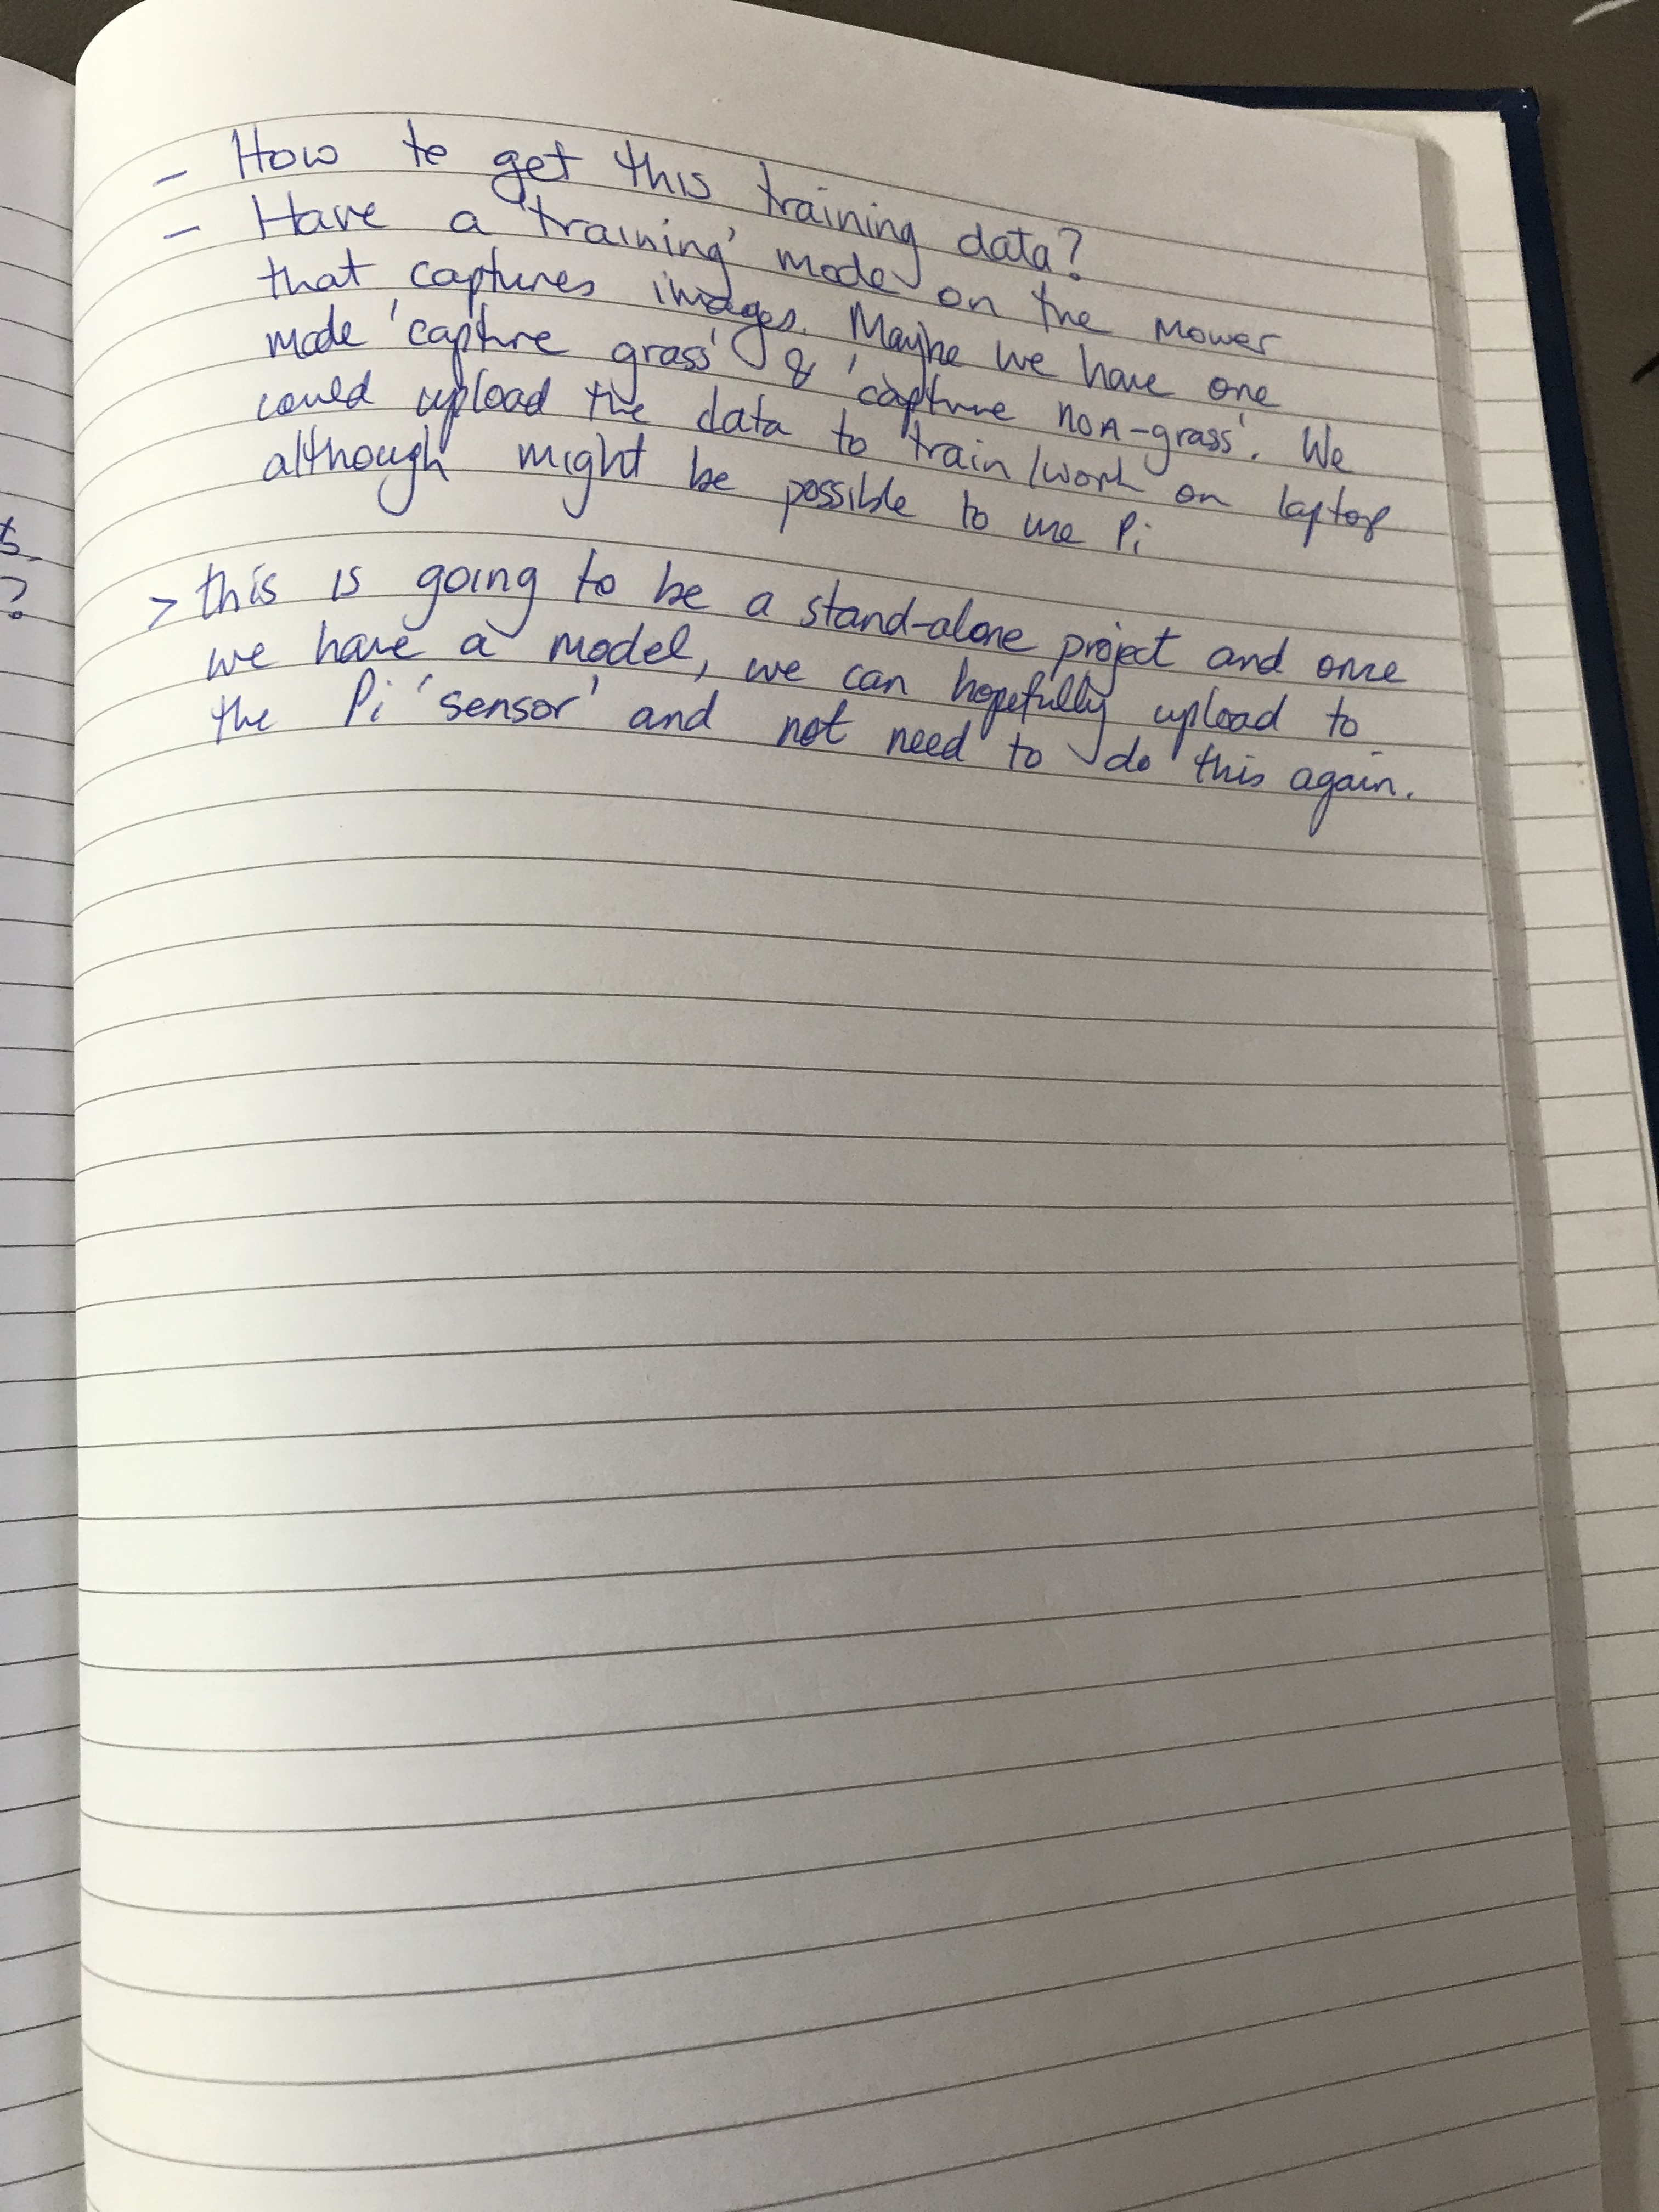 - How to get this training data?
- Have a 'training' mode on the mower
that captures images. Maybe we have one
mode 'capture grass' & 'capture non-grass'. We
could upload the data to train/work on laptop
although might be possible to use Pi
> this is going to be a stand-alone project and once
we have a model, we can hopefully upload to
the Pi 'sensor' and not need to do this again.